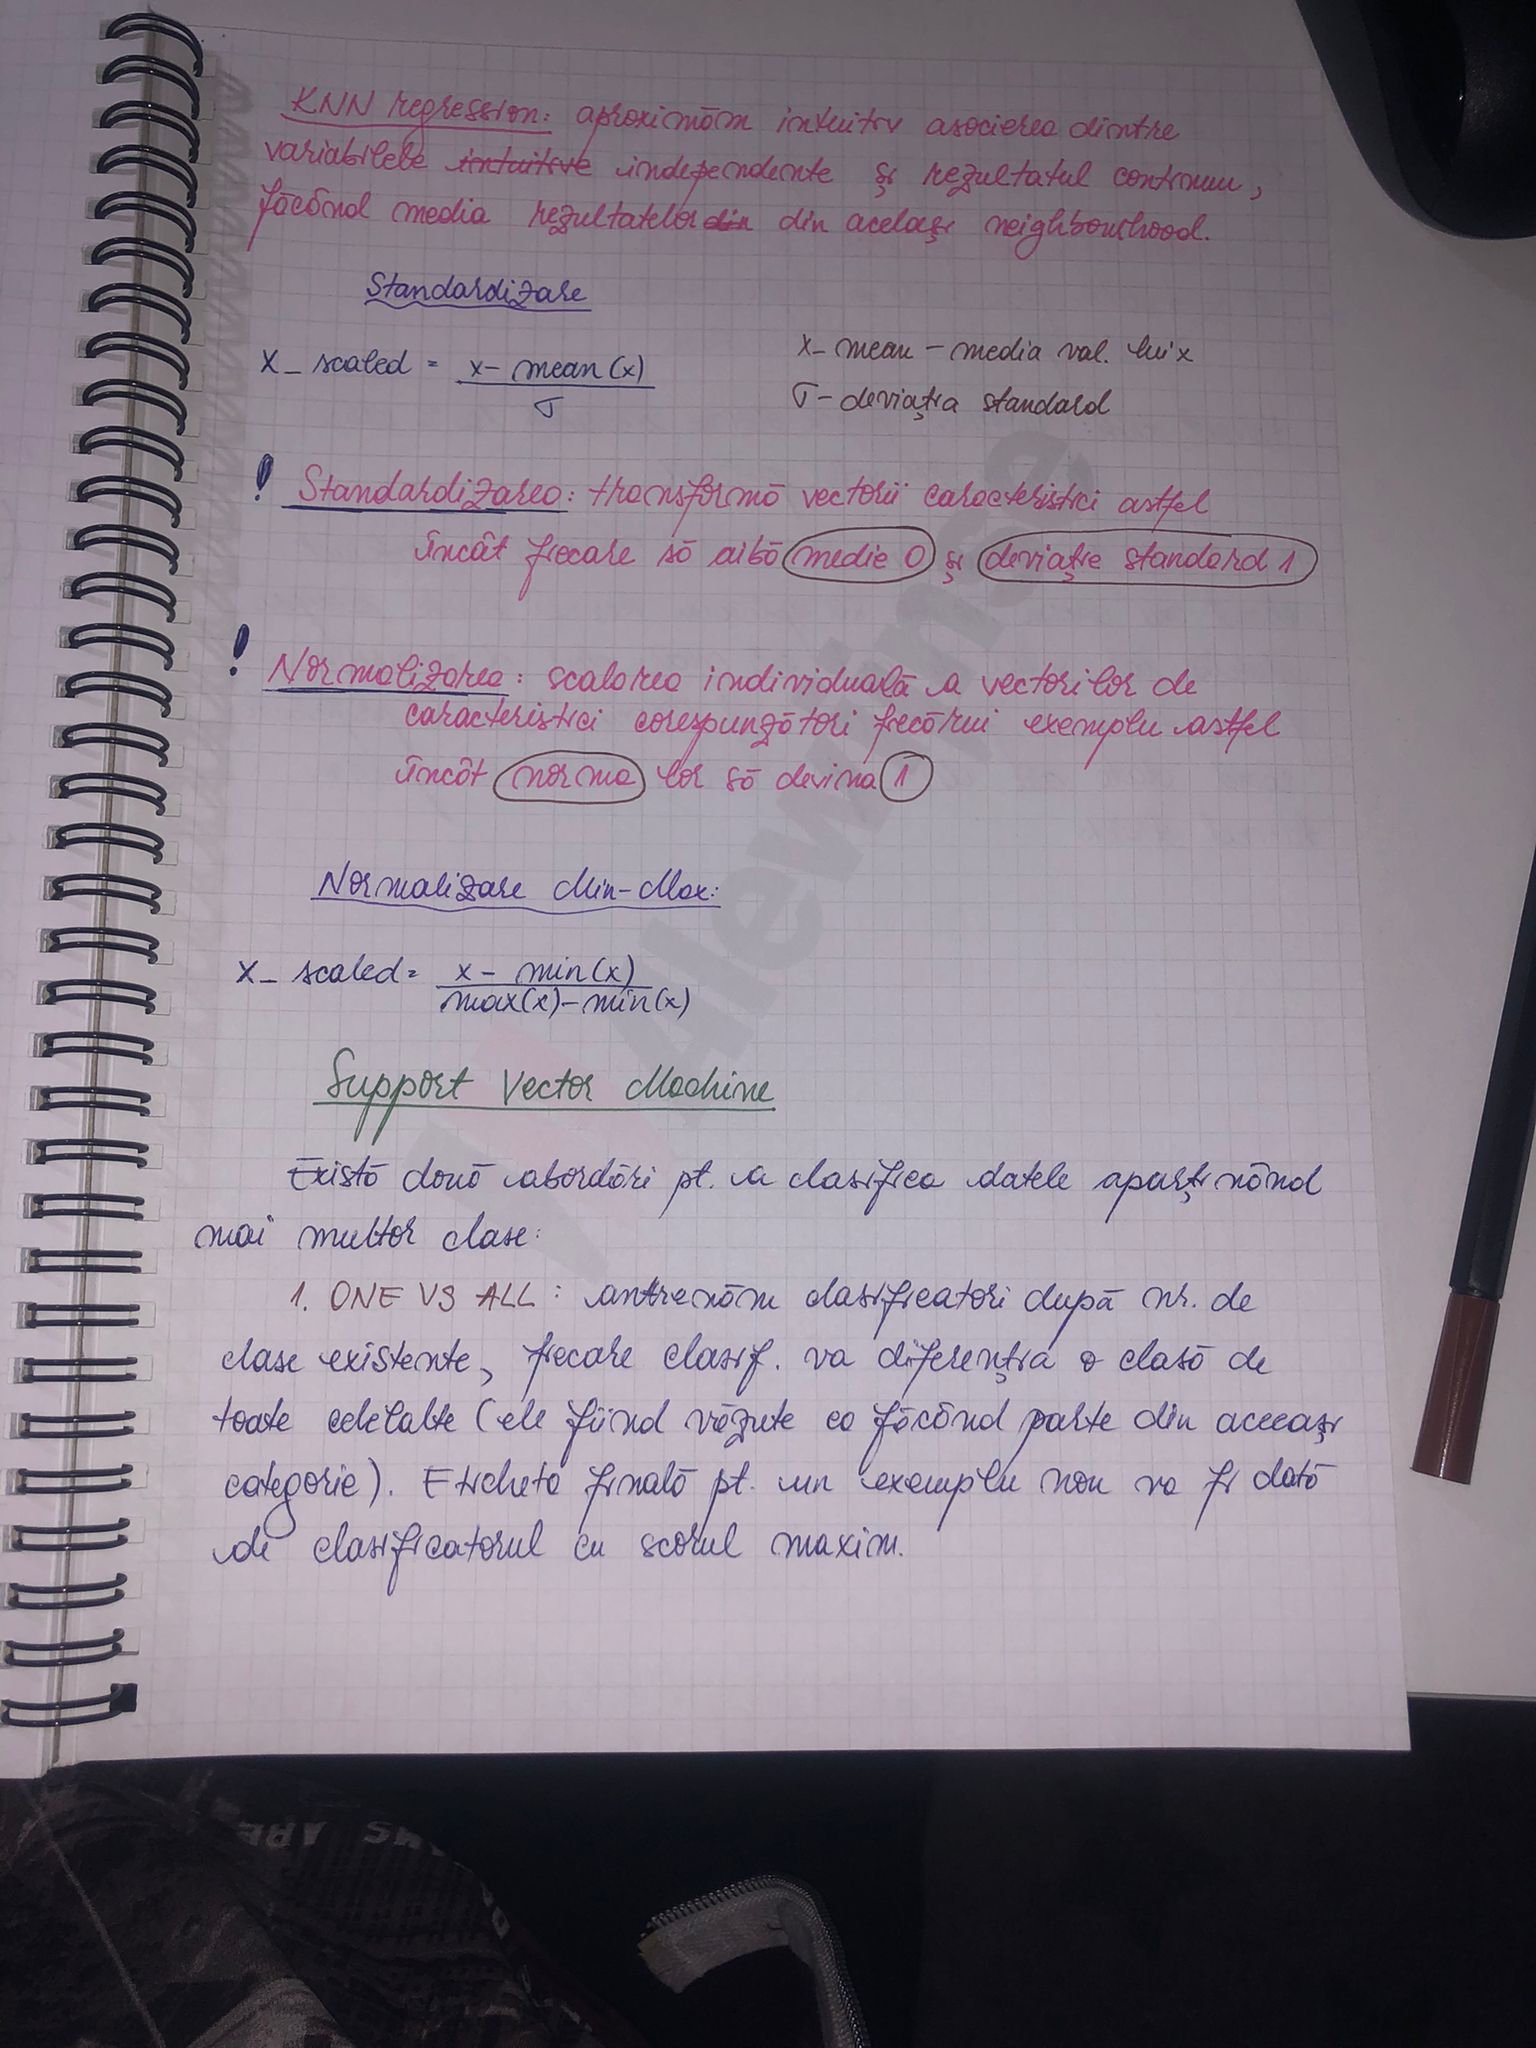 KNN regression: aproximăm intuitiv asocierea dintre
variabilele intuitive independente și rezultatul continuu,
făcând media rezultatelor din din același neighbourhood.
Standardizare
X_scaled = x - mean(x) / σ
x_mean - media val. lui x
σ - deviația standard
! Standardizarea: transformă vectorii caracteristici astfel
încât fiecare să aibă medie 0 și deviație standard 1
! Normalizarea: scalarea individuală a vectorilor de
caracteristici corespunzători fiecărui exemplu astfel
încât norma lor să devina 1
Normalizare Min-Max:
X_scaled = x - min(x) / max(x) - min(x)
Support Vector Machine
Există două abordări pt. a clasifica datele aparținând
mai multor clase:
1. ONE VS ALL: antrenăm clasificatori după nr. de
clase existente, fiecare clasif. va diferenția o clasă de
toate celelalte (ele fiind văzute ca făcând parte din aceeași
categorie). Eticheta finală pt. un exemplu nou va fi dată
de clasificatorul cu scorul maxim.